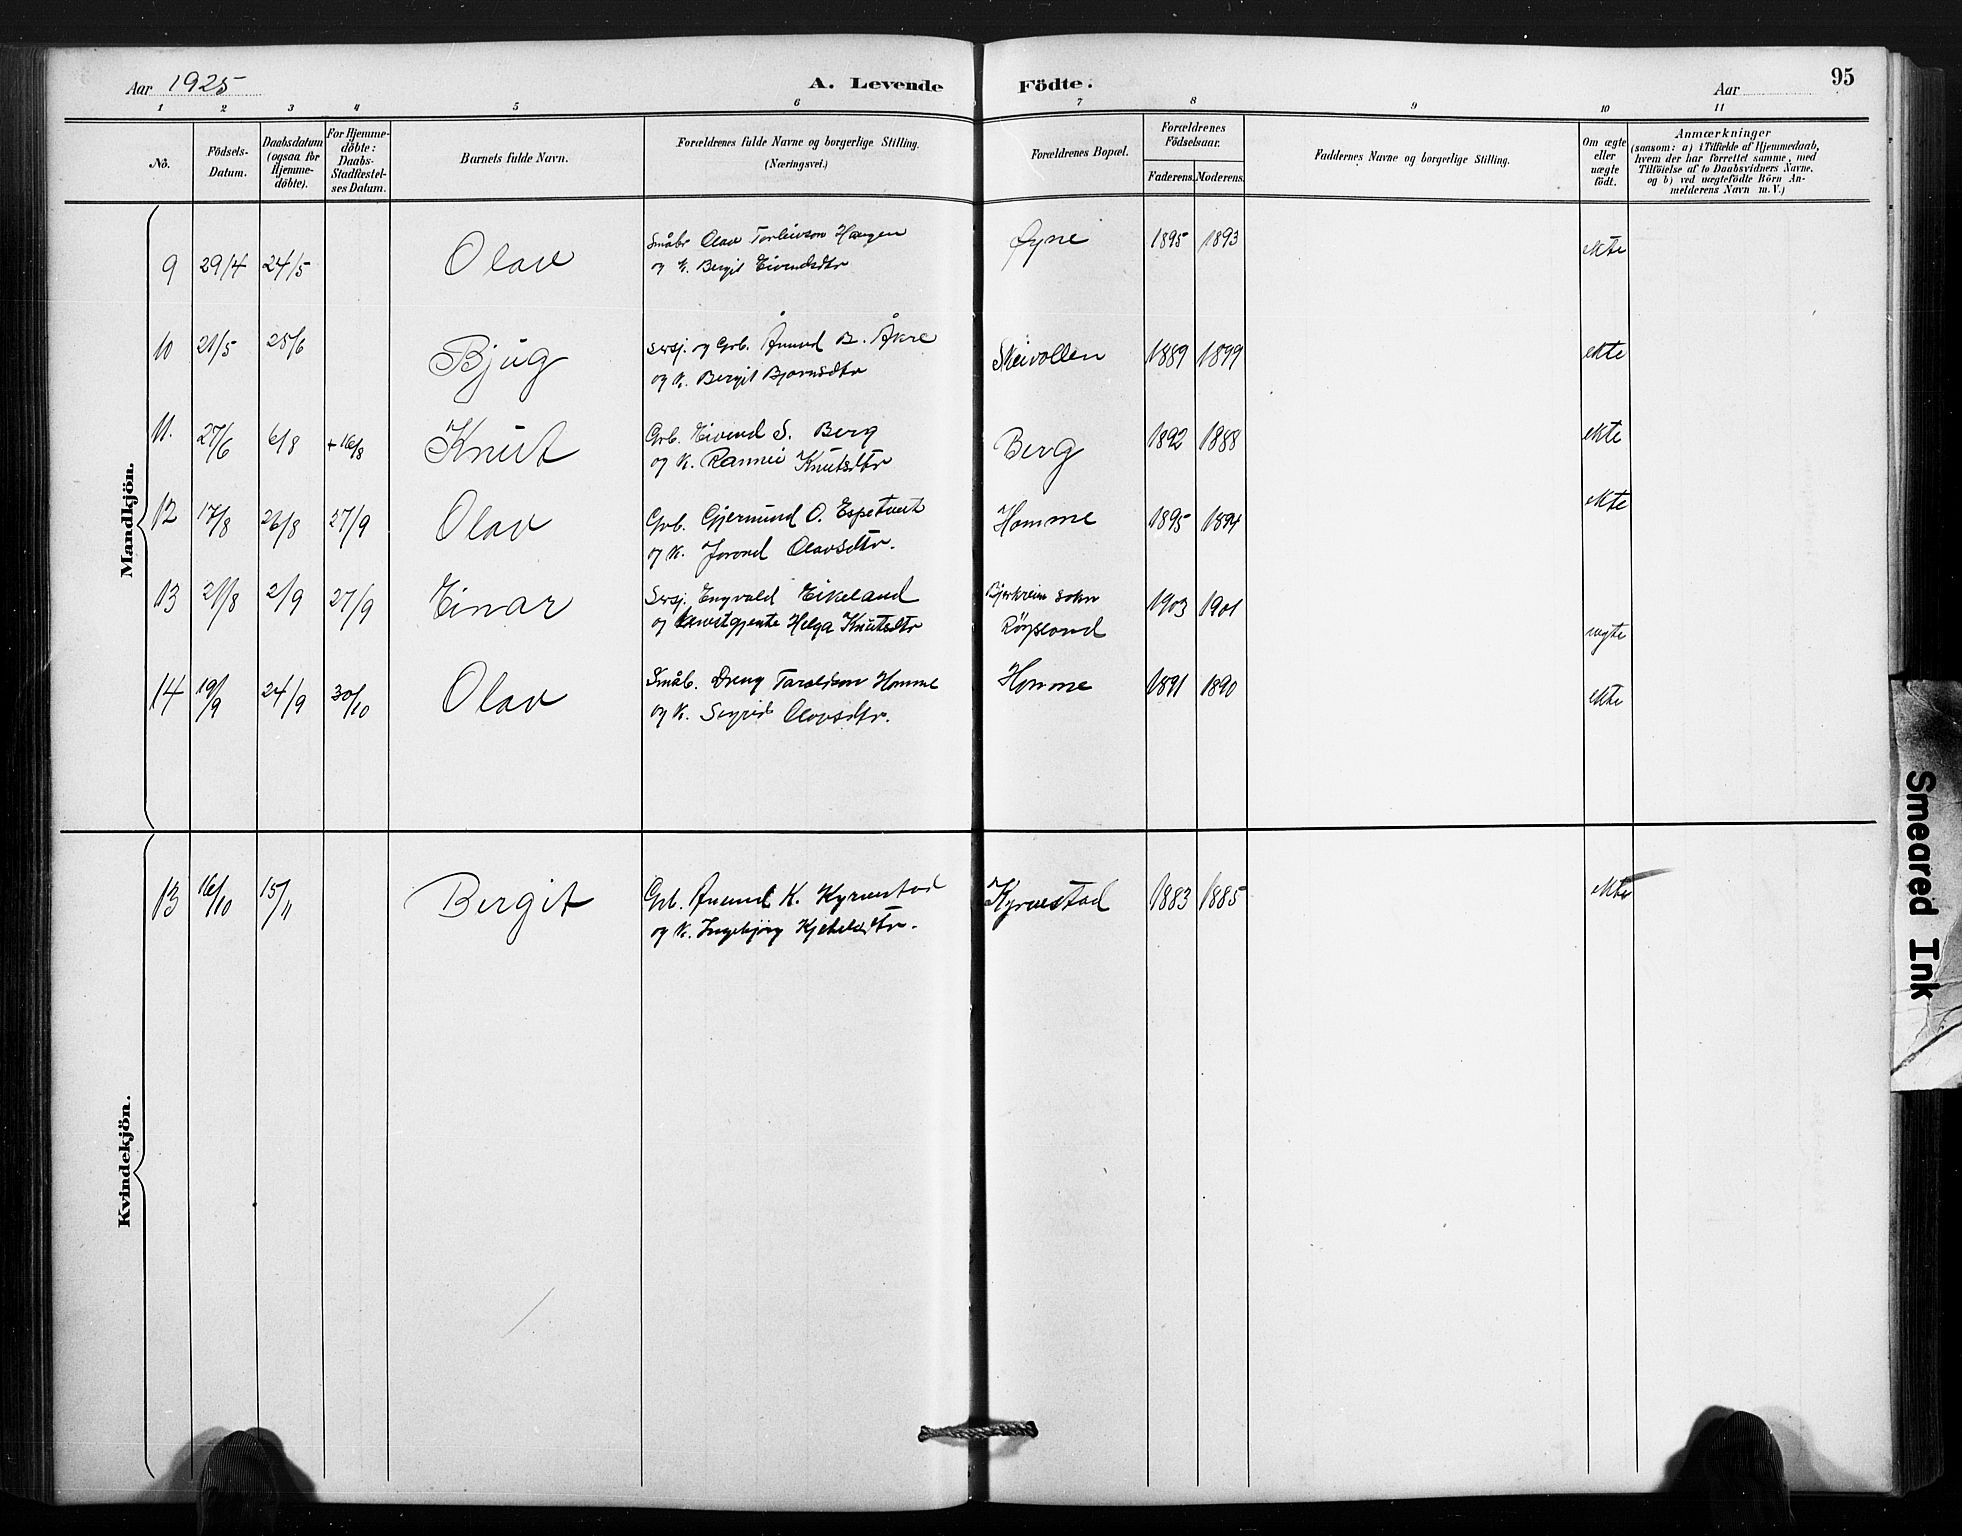 Aar 1925
A. Levende Födte.
Aar
95
1 2 3 4 5 6 7 8 9 10 11
Nô. Födsels-Datum. Daabsdatum (ogsaa for Hjemme-döbte). For Hjemme-döbte: Daabs-Stadfæstel-ses Datum. Barnets fulde Navn. Forældrenes fulde Navne og borgerlige Stilling. (Næringsvei.) Forældrenes Bopæl. Forældrenes Födselsaar. Faderens. Moderens. Faddernes Navne og borgerlige Stilling. Om ægte eller uægte födt. Anmærkninger (saasom: a) i Tilfælde af Hjemmedaab, hvem der har forrettet samme, med Tilföielse af to Daabsvidners Navne, og b) ved uægtefödte Börn An-melderens Navn m. V.)
Mandkjön.
9 29/4 24/5 Olav Småbr Olav Torleivson Haugen Øyne 1895 1893 ekte
og K. Bergit Eivendsdtr
10 21/5 25/6 Bjug Sersj. og Grb. Ånund B. Åkre Skeivollen 1889 1899 ekte
og K. Bergit Bjornsdtr
11. 27/6 6/8 + 16/8 Knut Grb. Eivend S. Berg Berg 1892 1888 ekte
og K. Rannei Knutsdtr
12 17/8 26/8 27/9 Olav Grb. Gjermund O. Espetveit Homme 1895 1894 ekte
og K. Jorond Olavsdtr.
13 21/8 2/9 27/9 Einar Sersj. Engvald Eikeland Bjerkreim sokn 1903 1901
og Helga Knutsdtr Røysland uegte
14 19/9 24/9 30/10 Olav Småb. Dreng Taraldson Homme Homme 1891 1890 ekte
og K. Sigrid Olavsdtr.
Kvindekjön.
13 16/10 15/11 Bergit Grb. Ånund K. Kyrvestad Kyrvestad 1883 1885 ekte
og K. Ingebjörg Kjetelsdtr.
Smeared Ink